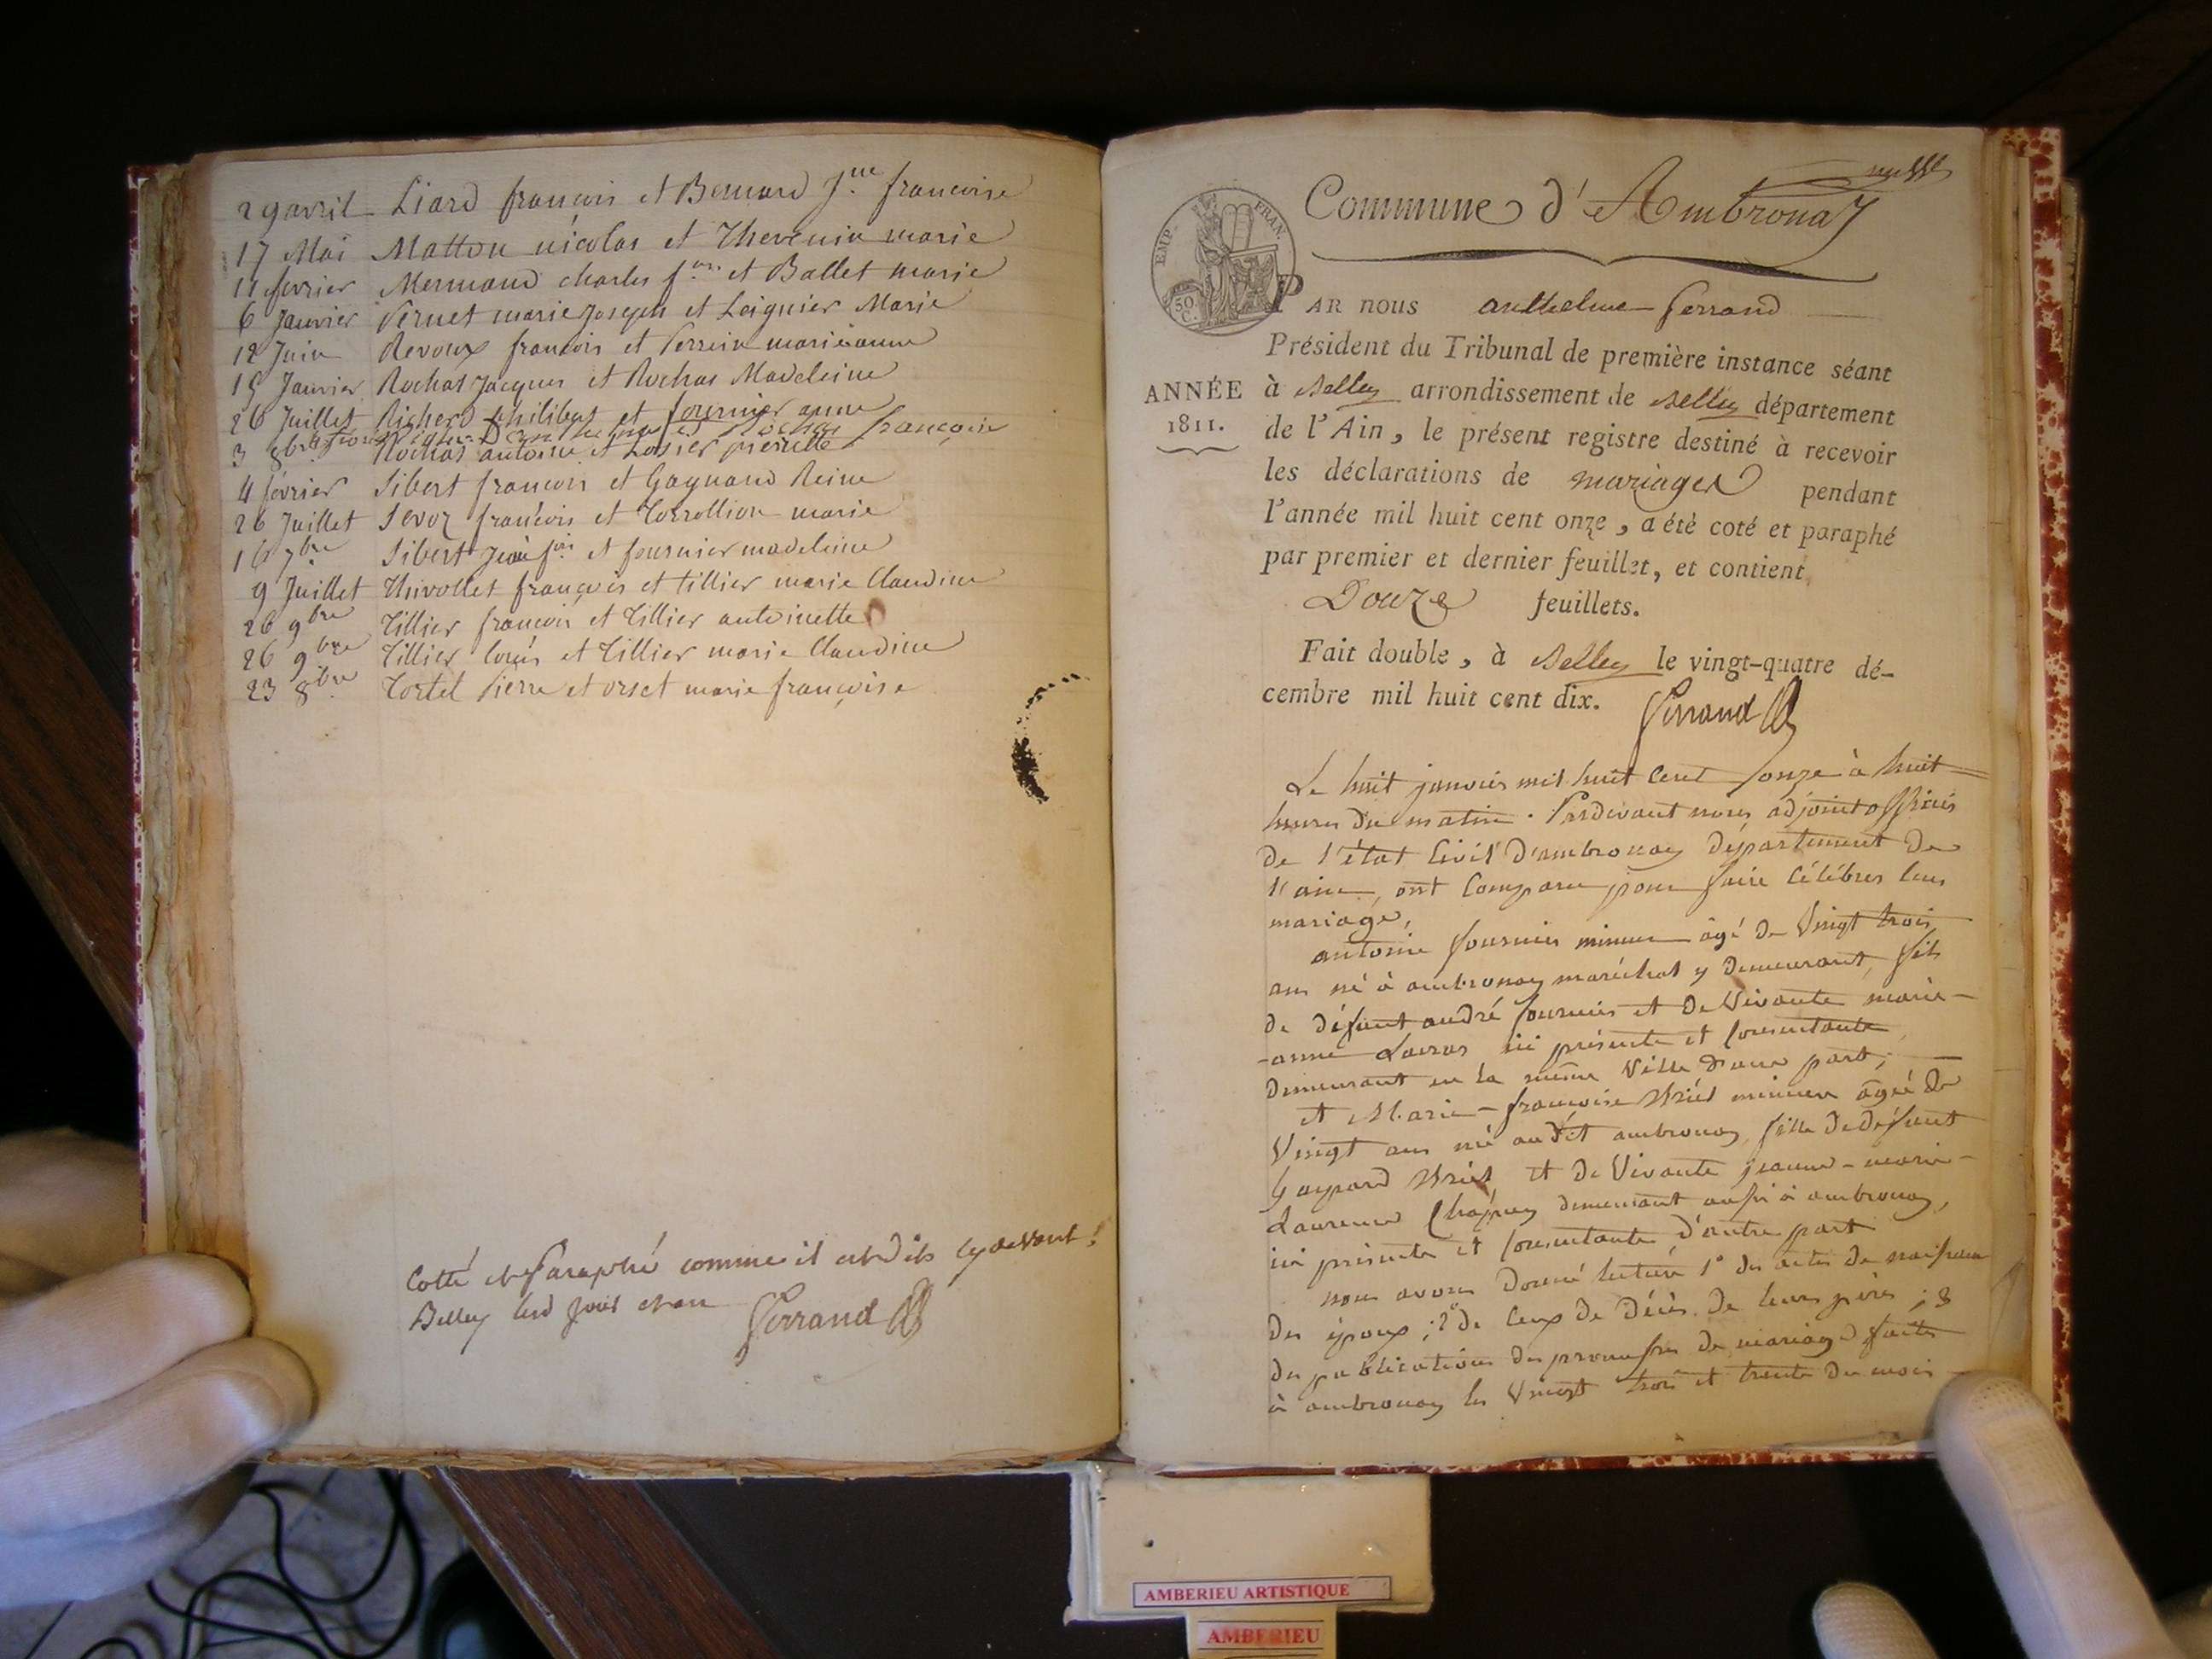 29 avril Liard francois et Bernard J.ne francoise
17 Mai Matton nicolas et Thevenin marie
11 fevrier Mermand charles f.ois et Ballet marie
6 Janvier Vernet marie Joseph et Loignier Marie
12 Juin Revoux francois et Perrin marieanne
15 Janvier Rochas Jacques et Rochas Madeleine
26 Juillet Richerd philibert et fournier anne
et Rochas francoise
3 8bre Rochas antoine et Losier pierrette
4 fevrier Sibert francois et Gagnand Reine
26 Juillet Sevoz francois et Torrollion marie
16 7bre Sibert Jean f.ois et fournier madeleine
9 Juillet Thivollet françois et tillier marie Claudine
26 9bre Tillier francois et Tillier antoinette
26 9bre Tillier louis et Tillier marie Claudine
23 8bre Tortel Pierre et orset marie françoise
Cotté et Paraphé comme il est dit cy devant!
Belley lesd jour et an Ferrand
Commune d'Ambronay
EMP. FRAN.
50. C.
PAR nous anthelme ferrand
Président du Tribunal de première instance séant
ANNÉE
1811.
à Belley arrondissement de Belley département
de l'Ain, le présent registre destiné à recevoir
les déclarations de mariages pendant
l'année mil huit cent onze, a été coté et paraphé
par premier et dernier feuillet, et contient
Douze feuillets.
Fait double, à Belley le vingt-quatre dé-
cembre mil huit cent dix. Ferrand
Le huit janvier mil huit cent onze à huit
heures du matin. Pardevant nous adjoint officier
de l'état civil d'ambronay département de
l'ain, ont comparu pour faire célébrer leur
mariage,
antoine fournier mineur âgé de vingt trois
ans né à ambronay maréchal y demeurant, fils
de défunt andré fournier et de vivante marie-
-anne Lacras ici présente et consentante,
demeurant en la même ville d'une part;
et Marie-françoise mineure âgée de
vingt ans née audit ambronay, fille de défunt
Gaspard et de vivante jeanne-marie-
Laurence Chapuy demeurant aussi à ambronay,
ici présente et consentante d'autre part
nous avons donné lecture 1° des actes de naissance
des époux; 2° de ceux de décès de leurs pères; 3
des publications des promesses de mariage faites
à ambronay les vingt trois et trente du mois
AMBERIEU ARTISTIQUE
AMBERIEU